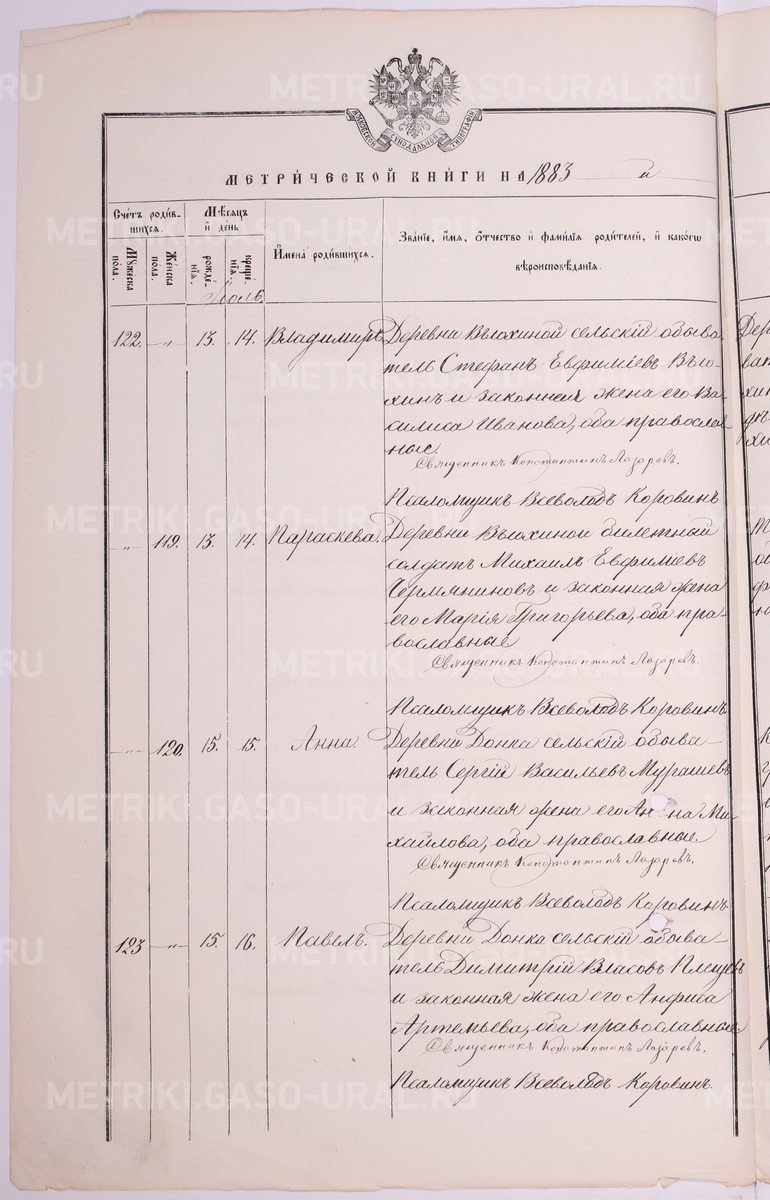 МОСКОВСКОЙ СѴНОДАЛЬНОЙ ТИПОГРАФІИ
МЕТРИ́ЧЕСКОЙ КНИ́ГИ НА 1883
Счетъ роди́вшихся.
Мѣсяцъ и день
Имена роди́вшихся.
Зва́ніе, и́мя, о́тчество и фами́лія роди́телей, и како́гѡ
вѣроисповѣ́данія.
Мꙋжеска пола.
Женска пола.
рожде́нія.
креще́нія.
Іюль.
122. „ 13. 14. Владиміръ Деревни Вьюхиной сельскій обыва
тель Стефанъ Евфиміевъ Вью-
хинъ и законная жена его Ва
силиса Иванова, оба православ
ные.
Священникъ Константинъ Лазаревъ.
Псаломщикъ Всеволодъ Коровинъ
„ 119. 13. 14. Параскева. Деревни Вьюхиной билетный
солдатъ Михаилъ Евфиміевъ
Чермяниновъ и законная жена
его Марія Григорьева, оба пра-
вославные
Священникъ Константинъ Лазаревъ.
Псаломщикъ Всеволодъ Коровинъ.
„ 120. 15. 15. Анна. Деревни Донка сельскій обыва-
тель Сергій Васильевъ Мурашевъ
и законная жена его Анна Ми
хаилова, оба православные.
Священникъ Константинъ Лазаревъ.
Псаломщикъ Всеволодъ Коровинъ
123 „ 15. 16. Павелъ. Деревни Донка сельскій обыва-
тель Димитрій Власовъ Плещевъ
и законная жена его Анфиса
Артемьева, оба православные
Священникъ Константинъ Лазаревъ.
Псаломщикъ Всеволодъ Коровинъ
METRIKI.GASO-URAL.RU